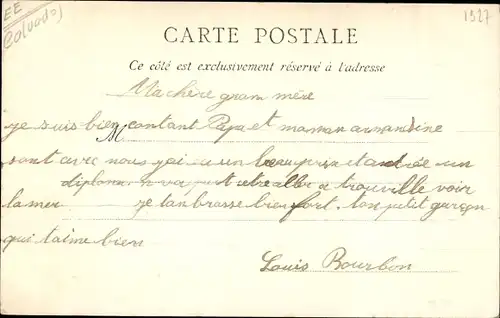 EE
Calvados
1927
CARTE POSTALE
Ce côté est exclusivement réservé à l'adresse
Machère gram mère
je suis bien contant Papa et maman amandine
sont avec nous jai eu un beau prix et andrée un
diplome va peut etre alle a trouville voir
la mer je tanbrasse bien fort. ton petit garçon
qui t'aime bien
Louis Bourbon